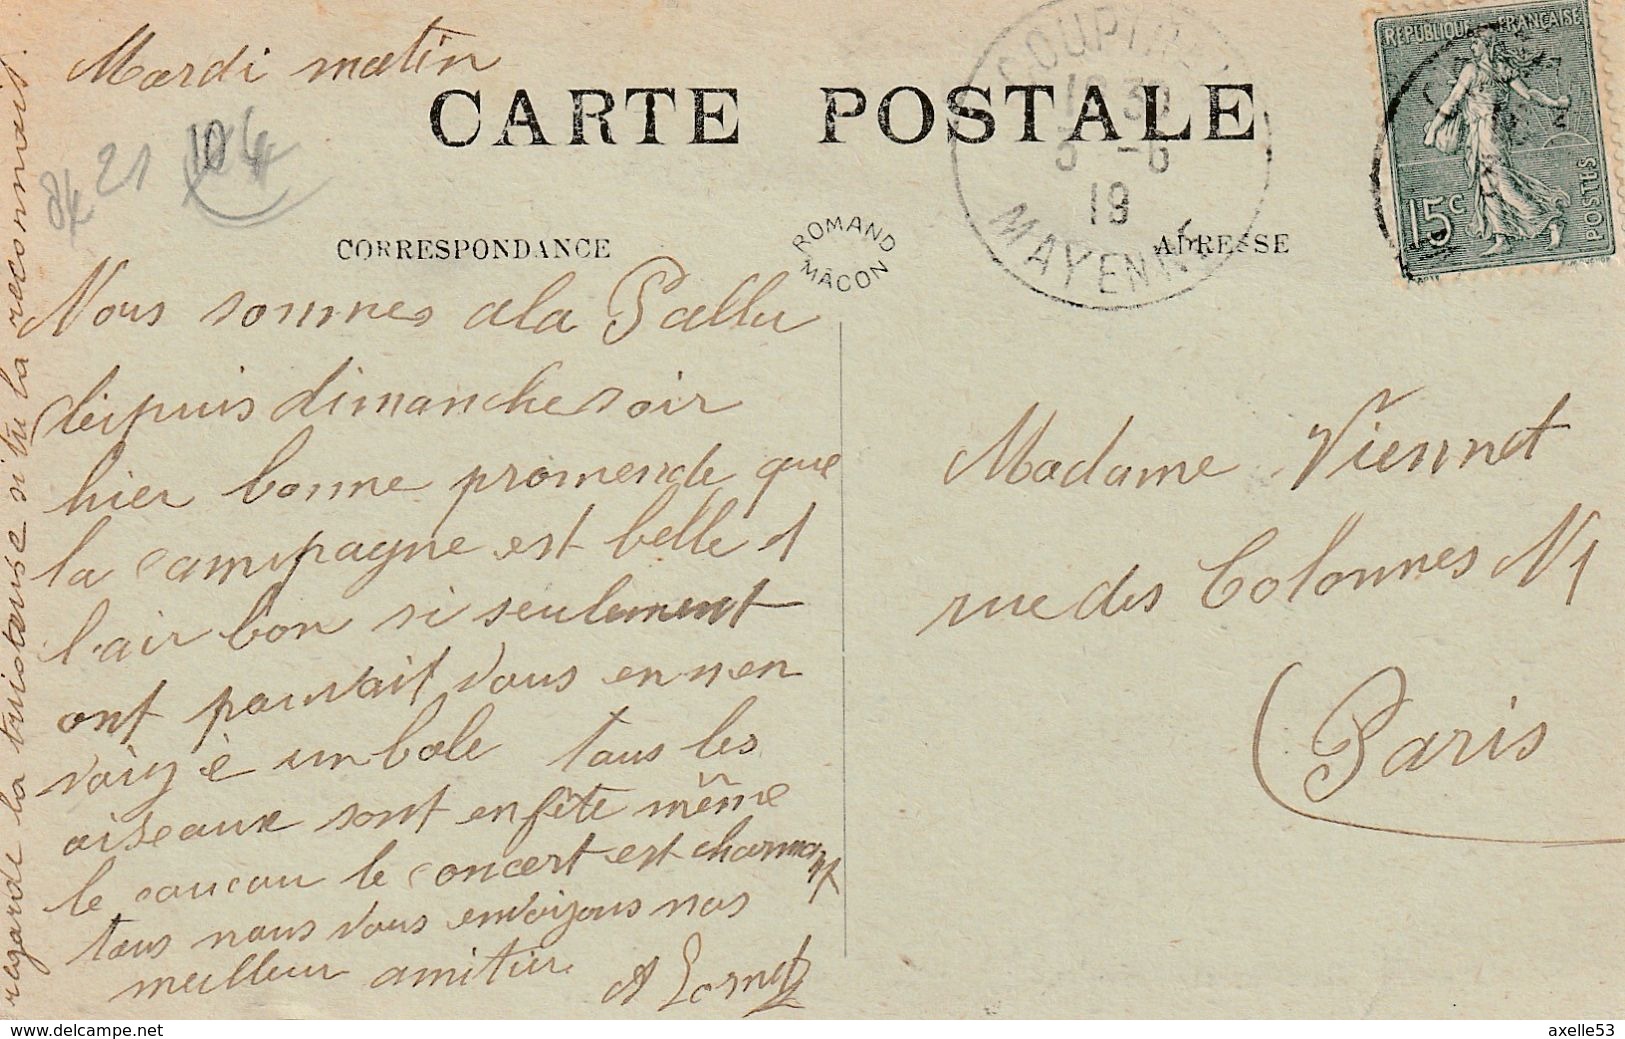 Mardi matin
CARTE POSTALE
84 21 104
CORRESPONDANCE
ROMAND
MÂCON
ADRESSE
COUPTRAIN
18 30
3 -6
19
MAYENNE
REPUBLIQUE FRANÇAISE
15c
POSTES
Nous sommes a la Pallu
deipuis dimanche soir
hier bonne promende que
la campagne est belle et
l'air bon si seulement
ont pouvait vous en nen
voiyè è un bole tous les
oiseaux sont en fête même
le coucou le concert est charmant
tous nous vous envoiyons nos
meilleur amitier.
regarde la tristeuse si tu la reconnais.
Madame Viennot
rue des Colonnes N 1
Paris
axelle53
www.delcampe.net